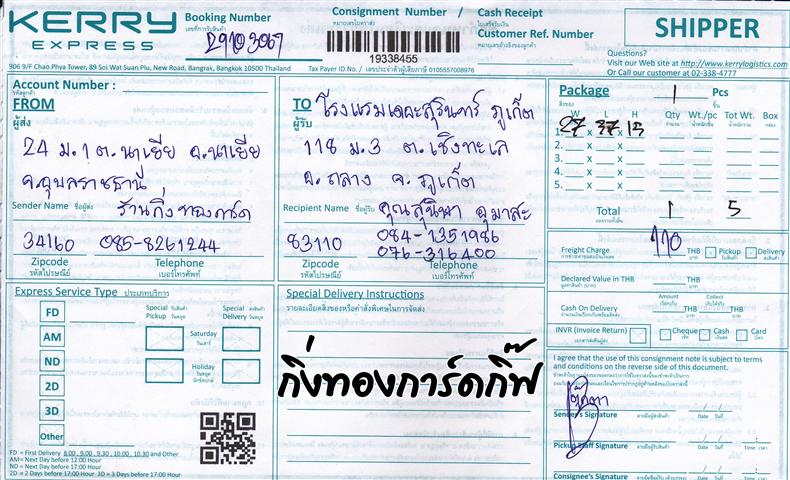 KERRY
EXPRESS
Booking Number
เลขที่การรับสินค้า
29103067
Consignment Number / Cash Receipt
หมายเลขใบตราส่ง
ใบเสร็จรับเงิน
19338455
Customer Ref. Number
หมายเลขอ้างอิงของลูกค้า
SHIPPER
Questions?
Visit our Web site at http://www.kerrylogistics.com
Or Call our customer at 02-338-4777
906 9/F Chao Phya Tower, 89 Soi Wat Suan Plu, New Road, Bangrak, Bangkok 10500 Thailand
Tax Payer ID.No. / เลขประจำตัวผู้เสียภาษี 0105557008976
Account Number :
รหัสลูกค้า
FROM
ผู้ส่ง
24 ม.1 ต.นาเยีย อ.นาเยีย
จ.อุบลราชธานี
Sender Name ชื่อผู้ส่ง ร้านกิ่งทองการ์ด
34160 085-8261244
Zipcode Telephone
รหัสไปรษณีย์ เบอร์โทรศัพท์
TO โรงแรมเดอะสุรินทร์ ภูเก็ต
ผู้รับ
118 ม.3 ต.เชิงทะเล
อ.ถลาง จ.ภูเก็ต
Recipient Name ชื่อผู้รับ คุณสุนิษา อุมาสะ
83110 084-1351986
076-316400
Zipcode Telephone
รหัสไปรษณีย์ เบอร์โทรศัพท์
Package 1 Pcs
สิ่งของ ชิ้น
W L H Qty Wt./pc Tot Wt. Box
จำนวน น้ำหนัก/ชิ้น น้ำหนักรวม กล่อง
1. 27 x 37 x 13
2. x x
3. x x
4. x x
5. x x
Total 1 5
Freight Charge 110 THB Pickup Delivery
Declared Value in THB
มูลค่าสินค้า (บาท) THB
บาท
Cash On Delivery Amount Collect
THB THB
INVR (Invoice Return) Cheque Cash Card
เช็ค เงินสด บัตร
I agree that the use of this consignment note is subject to terms
and conditions on the reverse side of this document.
Sender's Signature ลายมือชื่อผู้ส่งสินค้า Date / วันที่ Time / เวลา
Pickup Staff Signature Date / วันที่ Time / เวลา
Consignee's Signature Date / วันที่ Time / เวลา
Express Service Type ประเภทบริการ
FD
AM
ND
2D
3D
Other
Special Pickup
Special Delivery
Saturday
วันเสาร์
Holiday
วันหยุด
นักขัตฤกษ์
FD = First Delivery 8.00 , 9.00 , 9.30 , 10.00 , 10.30 and Other
AM = Next Day before 12:00 Hour
ND = Next Day before 17:00 Hour
2D = 2 Days before 17:00 Hour 3D = 3 Days before 17:00 Hour
Special Delivery Instructions
รายละเอียดสิ่งของหรือคำสั่งพิเศษในการจัดส่ง
กิ่งทองการ์ดกิ๊ฟ